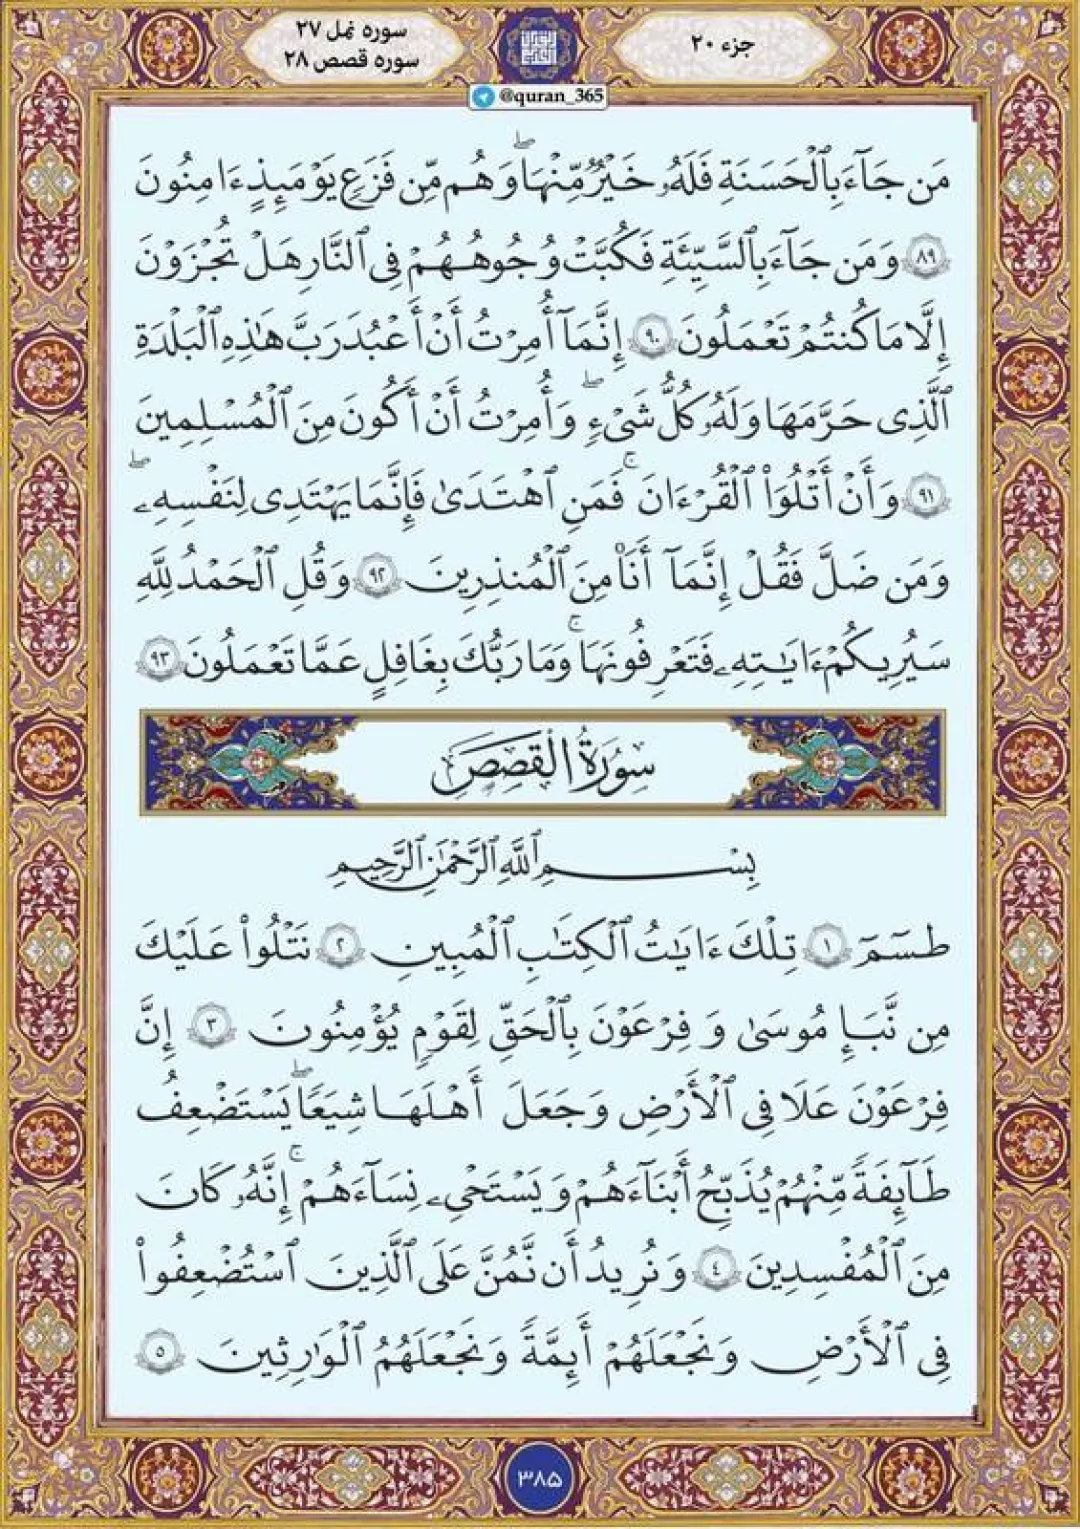 جزء ۲۰
سوره نمل ۲۷
سوره قصص ۲۸
@quran_365
مَن جَآءَ بِٱلْحَسَنَةِ فَلَهُۥ خَيْرٌ مِّنْهَا ۖ وَهُم مِّن فَزَعٍ يَوْمَئِذٍ ءَامِنُونَ
٨٩ وَمَن جَآءَ بِٱلسَّيِّئَةِ فَكُبَّتْ وُجُوهُهُمْ فِى ٱلنَّارِ هَلْ تُجْزَوْنَ
إِلَّا مَا كُنتُمْ تَعْمَلُونَ ٩٠ إِنَّمَآ أُمِرْتُ أَنْ أَعْبُدَ رَبَّ هَٰذِهِ ٱلْبَلْدَةِ
ٱلَّذِى حَرَّمَهَا وَلَهُۥ كُلُّ شَىْءٍ ۖ وَأُمِرْتُ أَنْ أَكُونَ مِنَ ٱلْمُسْلِمِينَ
٩١ وَأَنْ أَتْلُوَا۟ ٱلْقُرْءَانَ ۚ فَمَنِ ٱهْتَدَىٰ فَإِنَّمَا يَهْتَدِى لِنَفْسِهِۦ ۖ
وَمَن ضَلَّ فَقُلْ إِنَّمَآ أَنَا۠ مِنَ ٱلْمُنذِرِينَ ٩٢ وَقُلِ ٱلْحَمْدُ لِلَّهِ
سَيُرِيكُمْ ءَايَٰتِهِۦ فَتَعْرِفُونَهَا ۚ وَمَا رَبُّكَ بِغَافِلٍ عَمَّا تَعْمَلُونَ ٩٣
سُورَةُ الْقَصَصِ
بِسْمِ ٱللَّهِ ٱلرَّحْمَٰنِ ٱلرَّحِيمِ
طسٓمٓ ١ تِلْكَ ءَايَٰتُ ٱلْكِتَٰبِ ٱلْمُبِينِ ٢ نَتْلُوا۟ عَلَيْكَ
مِن نَّبَإِ مُوسَىٰ وَفِرْعَوْنَ بِٱلْحَقِّ لِقَوْمٍ يُؤْمِنُونَ ٣ إِنَّ
فِرْعَوْنَ عَلَا فِى ٱلْأَرْضِ وَجَعَلَ أَهْلَهَا شِيَعًا ۖ يَسْتَضْعِفُ
طَآئِفَةً مِّنْهُمْ يُذَبِّحُ أَبْنَآءَهُمْ وَيَسْتَحْىِۦ نِسَآءَهُمْ ۚ إِنَّهُۥ كَانَ
مِنَ ٱلْمُفْسِدِينَ ٤ وَنُرِيدُ أَن نَّمُنَّ عَلَى ٱلَّذِينَ ٱسْتُضْعِفُوا۟
فِى ٱلْأَرْضِ وَنَجْعَلَهُمْ أَئِمَّةً وَنَجْعَلَهُمُ ٱلْوَٰرِثِينَ ٥
۳۸۵